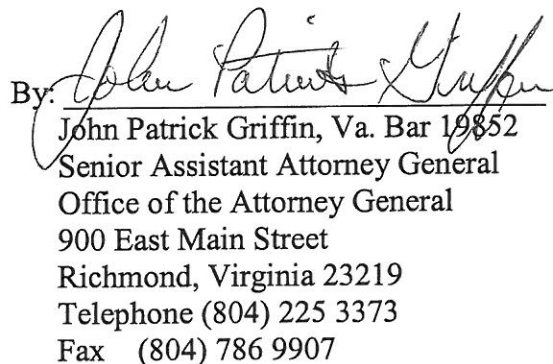 By: John Patrick Griffin
John Patrick Griffin, Va. Bar 19852
Senior Assistant Attorney General
Office of the Attorney General
900 East Main Street
Richmond, Virginia 23219
Telephone (804) 225 3373
Fax (804) 786 9907